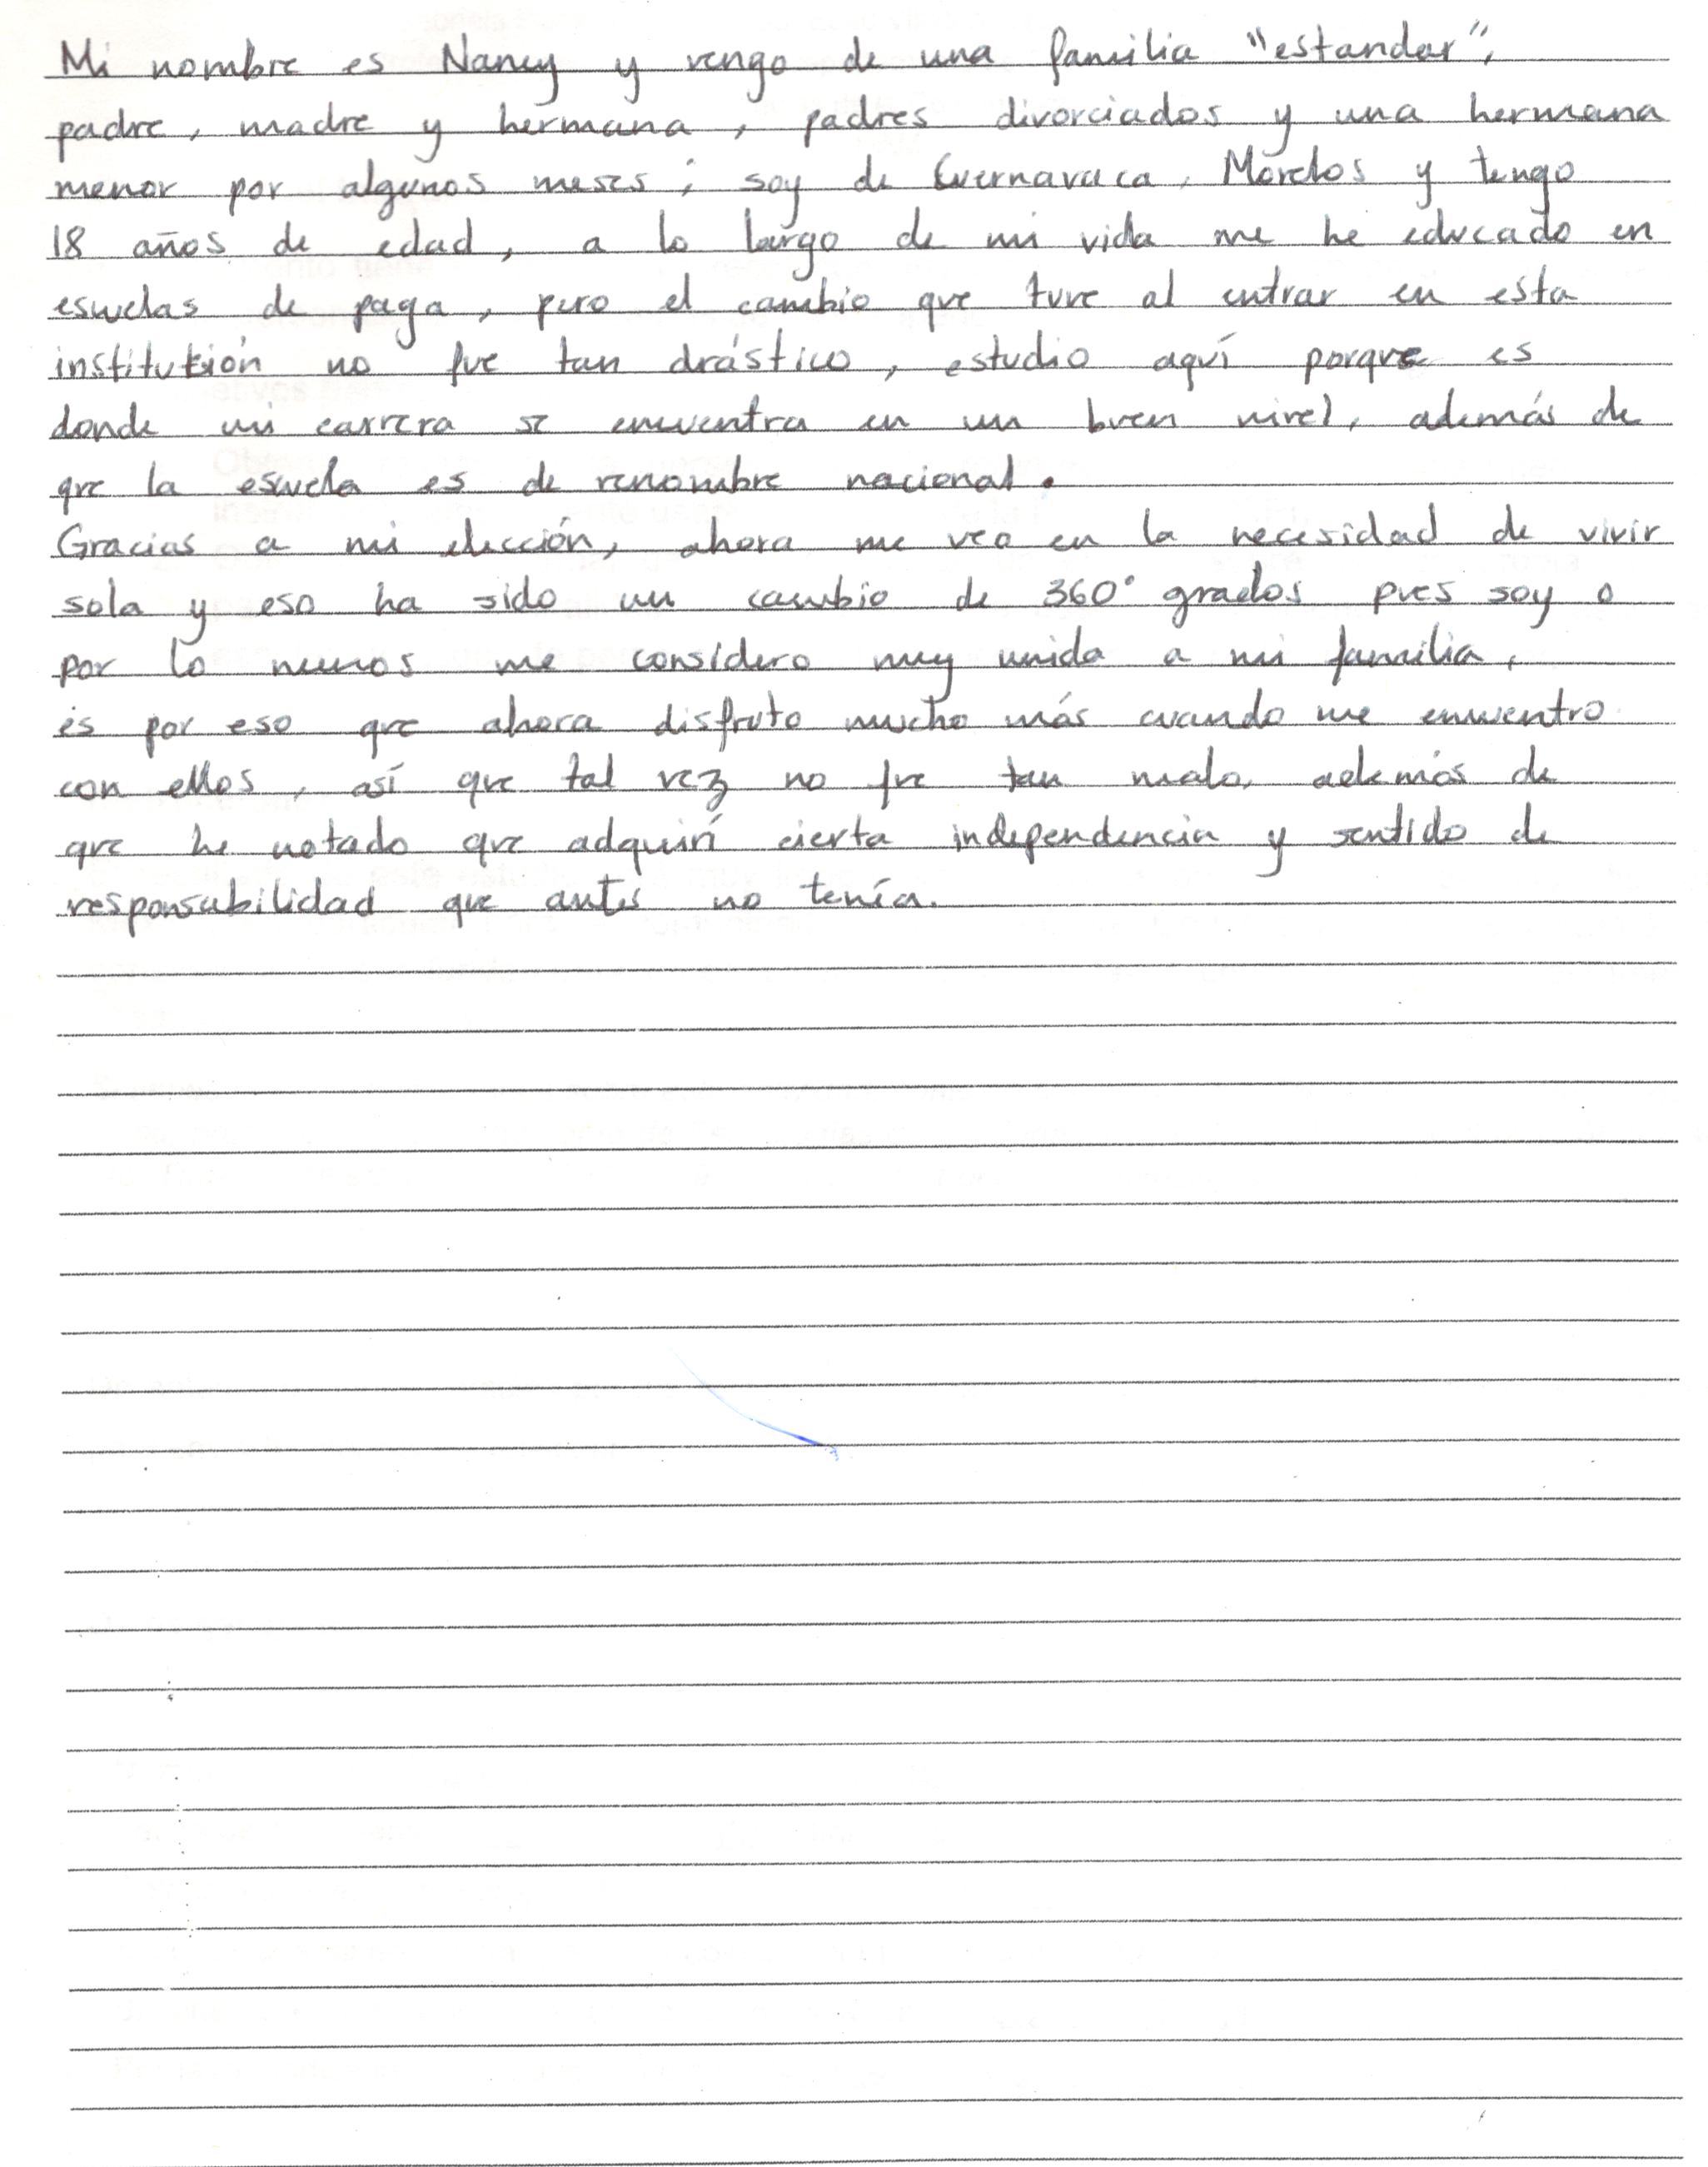 Mi nombre es Nancy y vengo de una familia "estandar",
padre, madre y hermana, padres divorciados y una hermana
menor por algunos meses; soy de Cuernavaca, Morelos y tengo
18 años de edad, a lo largo de mi vida me he educado en
escuelas de paga, pero el cambio que tuve al entrar en esta
institución no fue tan drástico, estudio aquí porque es
donde mi carrera se encuentra en un buen nivel, además de
que la escuela es de renombre nacional.
Gracias a mi elección, ahora me veo en la necesidad de vivir
sola y eso ha sido un cambio de 360° grados pues soy o
por lo menos me considero muy unida a mi familia,
es por eso que ahora disfruto mucho más cuando me encuentro
con ellos, así que tal vez no fue tan malo, además de
que he notado que adquirí cierta independencia y sentido de
responsabilidad que antes no tenía.